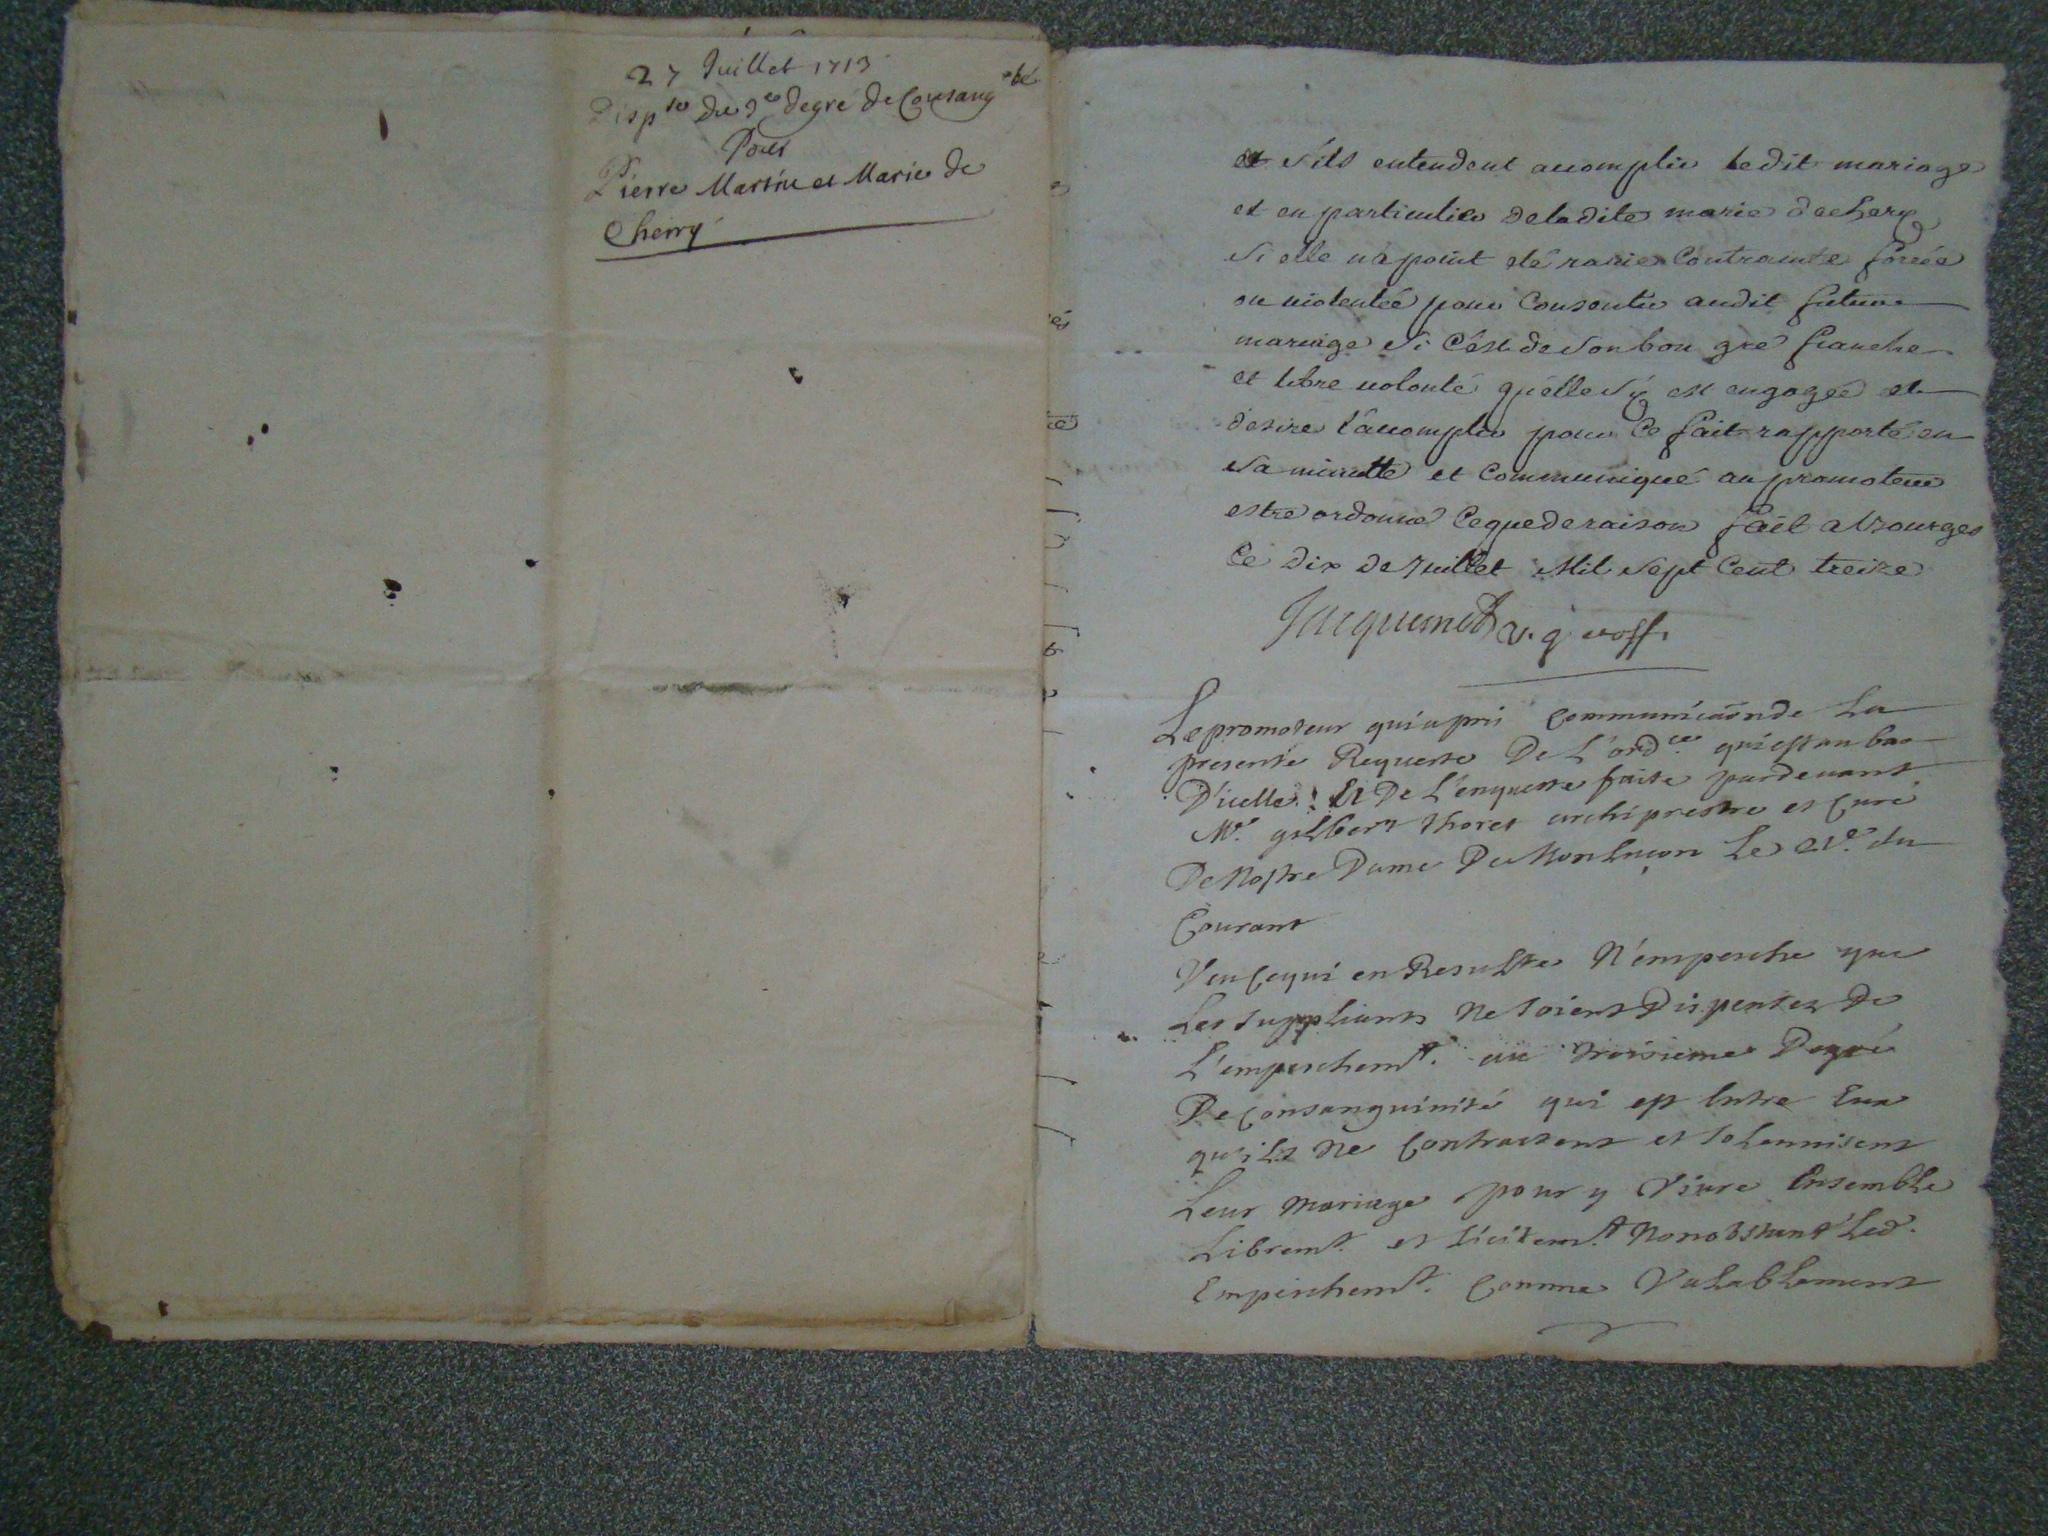 27 Juillet 1713
Disp^se du 3^e degré de Consang^té
Pour
Pierre Martin et Marie de
Cherry
et s'ils entendent accomplir ledit mariage
et en particulier deladite marie dechery
si elle n'a point eté ravie Contrainte forcée
ou violentée pour Consentir audit futur
mariage si C'est de son bon gré franche
et libre volonté qu'elle s'y est engagée et
desire l'accomplir pour Ce fait rapporté en
sa minutte et Communiqué au promoteur
estre ordonné Ceque de raison fait a Bourges
Ce dix de Juillet Mil sept Cent treize
Jacquemet v. g. et off.
Le promoteur qui a pris communicaõn de La
presente Requeste De L'ord^ce qui est au bas
D'icelle. Et De L'enqueste faite pardevant
M^e. gilbert thoret archiprestre et Curé
De Nostre Dame De Monluçon Le 21^e. du
Courant
Veu Ce qui en Resulte N'empesche que
Les suppliants Ne soient Dispensez De
L'empeschem^t. au troisieme Degré
De Consanguinité qui est Entre Eux
qu'ils Ne Contractent et solemnisent
Leur Mariage pour y Vivre Ensemble
Librem^t. et licitem^t. Nonobstant Led.
Empeschem^t. Comme Valablement